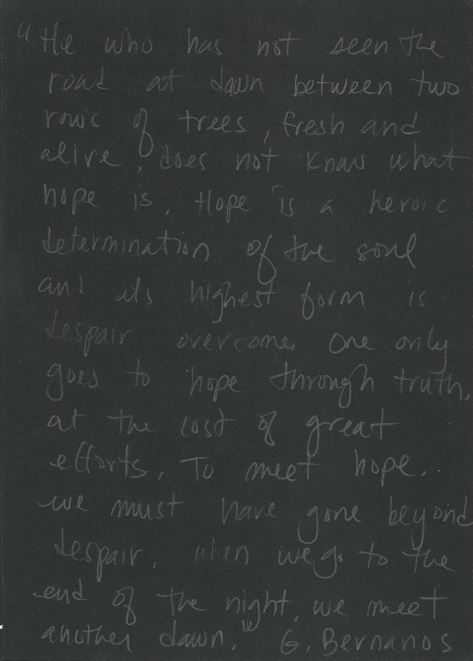 "He who has not seen the
road at dawn between two
rows of trees, fresh and
alive, does not know what
hope is. Hope is a heroic
determination of the soul
and its highest form is
despair overcome. One only
goes to hope through truth,
at the cost of great
efforts. To meet hope,
we must have gone beyond
despair. When we go to the
end of the night, we meet
another dawn." G. Bernanos